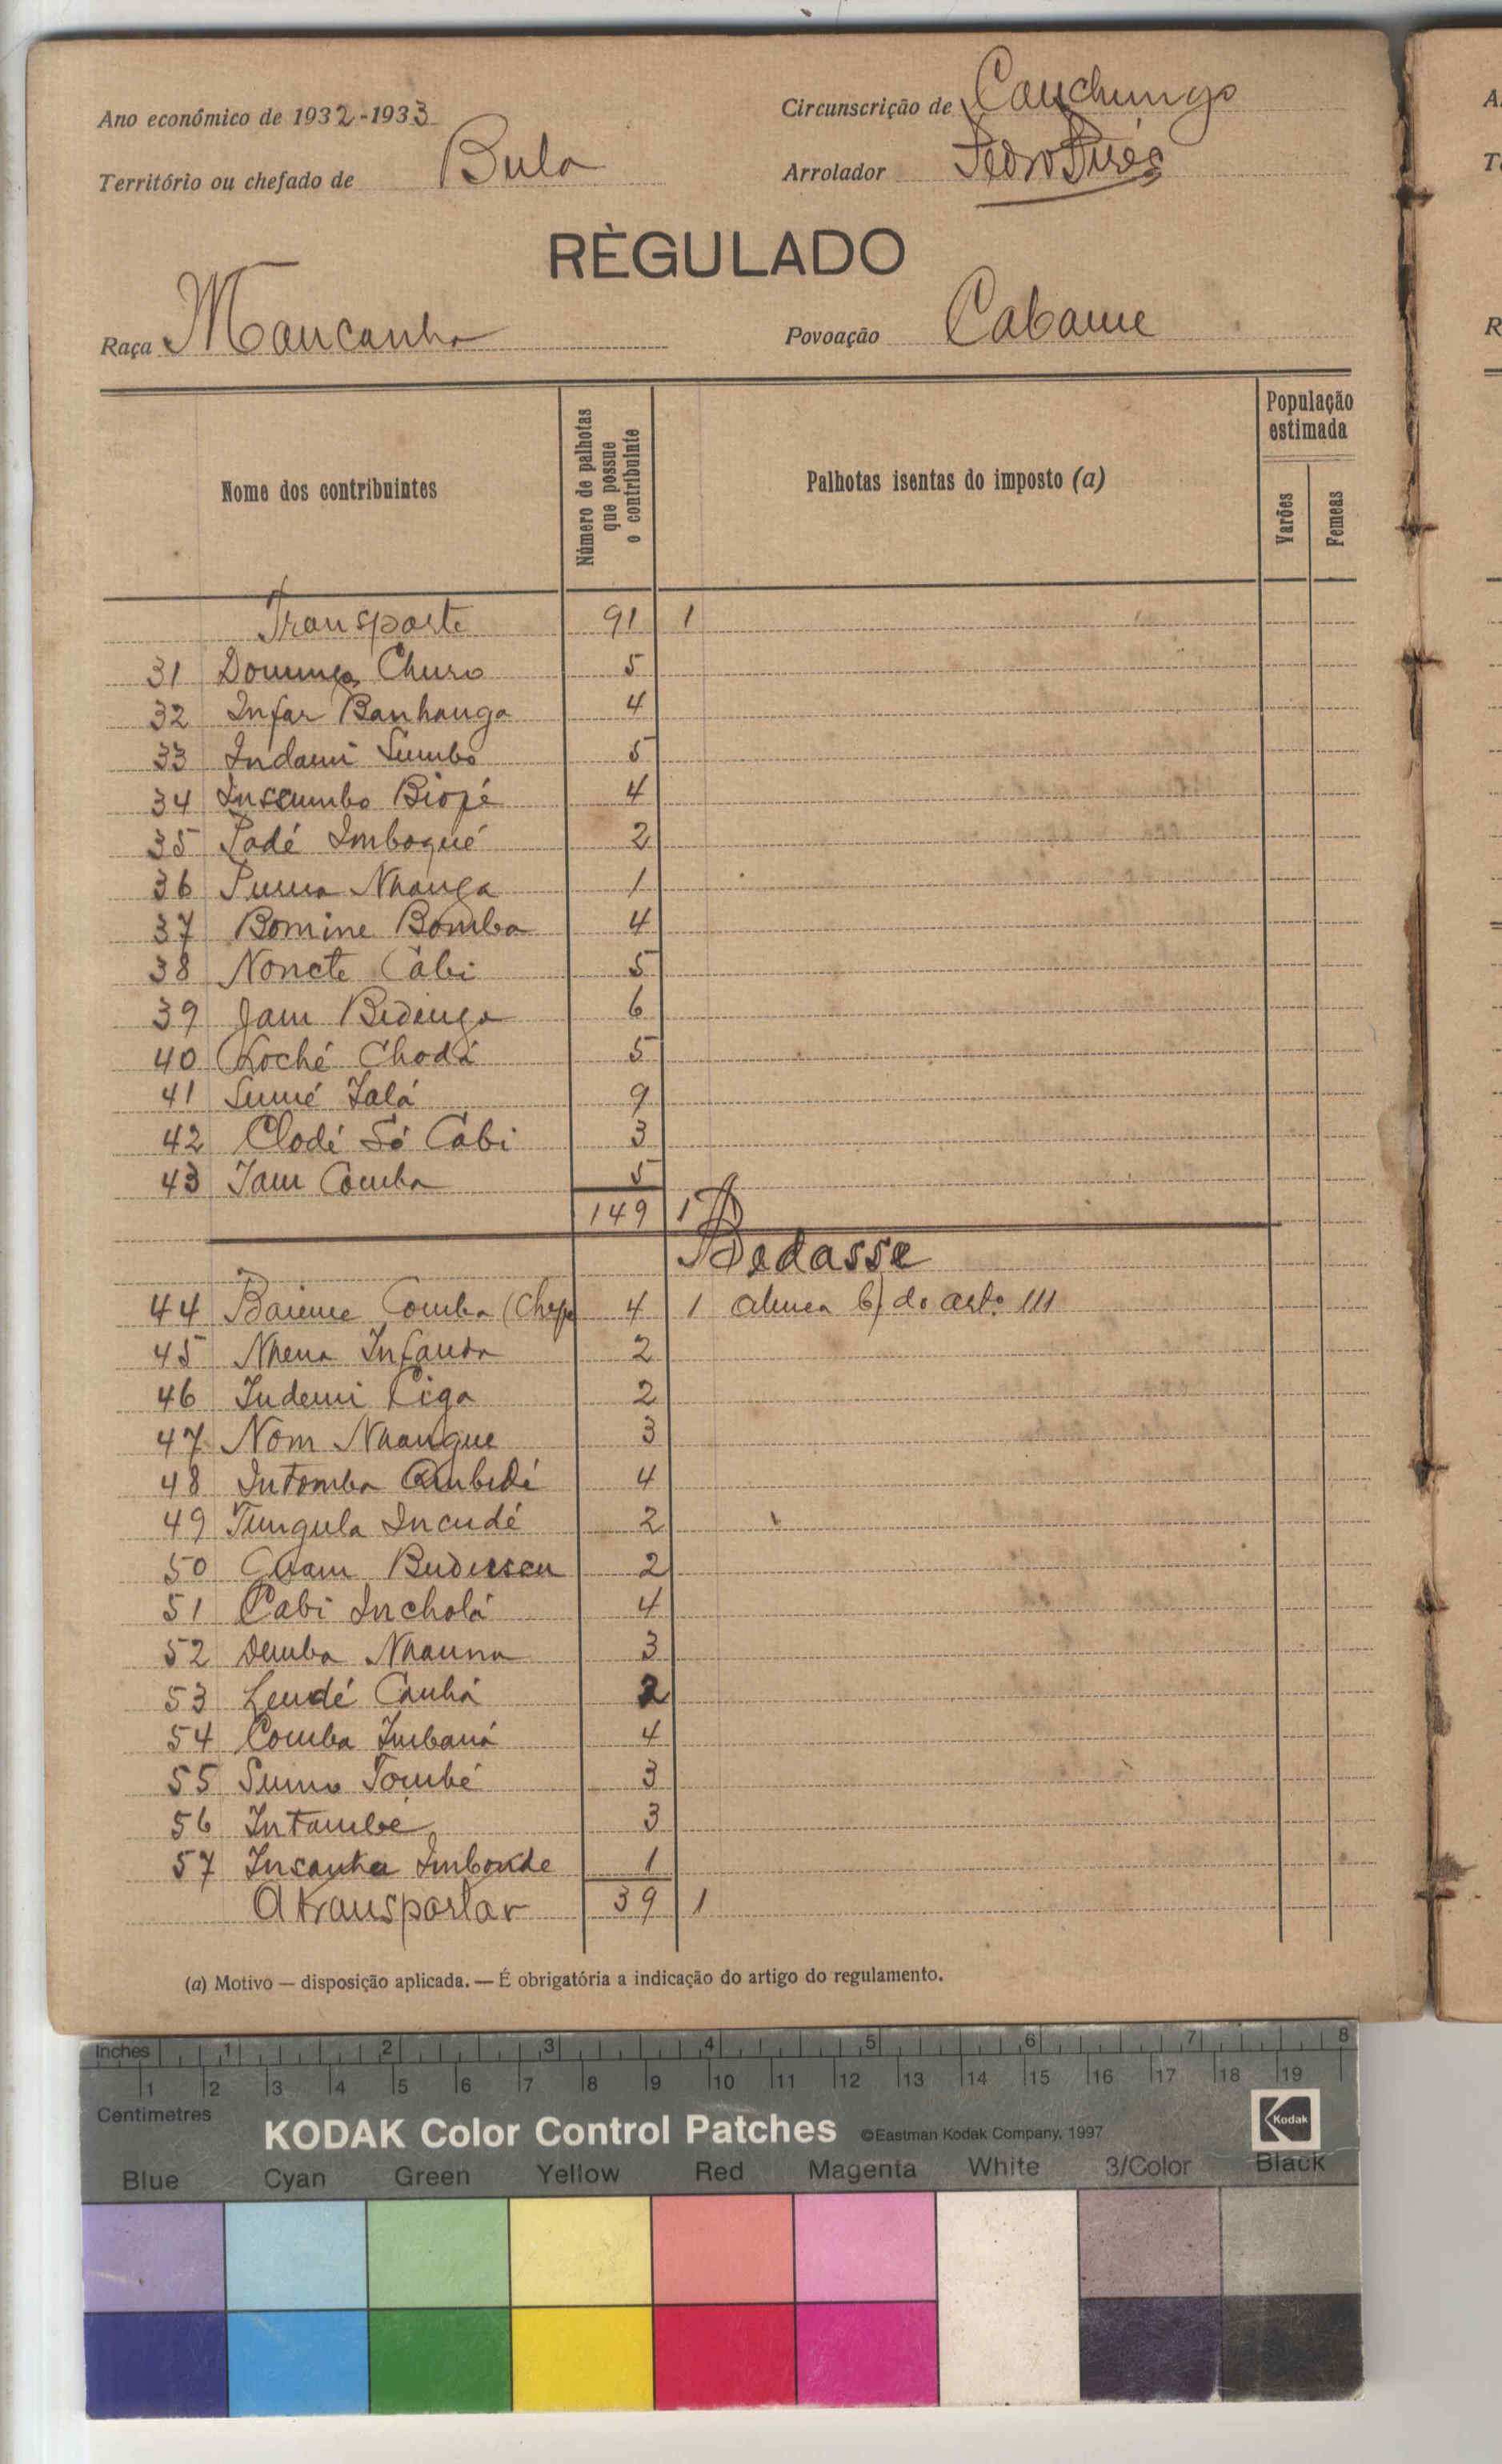 Ano económico de 1932-1933
Circunscrição de Canchungo
Território ou chefado de Bula
Arrolador Pedro Pires
RÈGULADO
Raça Mancanha
Povoação Cabame
Nome dos contribuintes
Número de palhotas que possue o contribuinte
Palhotas isentas do imposto (a)
População estimada
Varões
Femeas
Transporte 91 1
31 Domingos Churo 5
32 Infar Banhanga 4
33 Indami Sumbo 5
34 Insumbo Biopé 4
35 Padé Imboqué 2
36 Nhanga 1
37 Bomine Bomba 4
38 Noncte Cabi 5
39 Jam Bidinga 6
40 Koché Chodá 5
41 Sumé Jalá 9
42 Clodé Só Cabi 3
43 Jam Comba 5
149 1
Bedasse
44 Baieme Comba (Chefe 4 1 alinea b) do artº 111
45 Nhena Infanda 2
46 Indemi Liga 2
47 Nom Nhangue 3
48 Intomba Ambidé 4
49 Tungula Incudé 2
50 2
51 Cabi Incholá 4
52 Demba Nhauna 3
53 Lendé Canhá 2
54 Comba Imbaná 4
55 Suma Tombé 3
56 Intambé 3
57 Insanha Imbonde 1
A transportar 39 1
(a) Motivo — disposição aplicada. — É obrigatória a indicação do artigo do regulamento.
Inches 1 2 3 4 5 6 7 8
1 2 3 4 5 6 7 8 9 10 11 12 13 14 15 16 17 18 19
Centimetres
KODAK Color Control Patches ©Eastman Kodak Company, 1997 Kodak
Blue Cyan Green Yellow Red Magenta White 3/Color Black